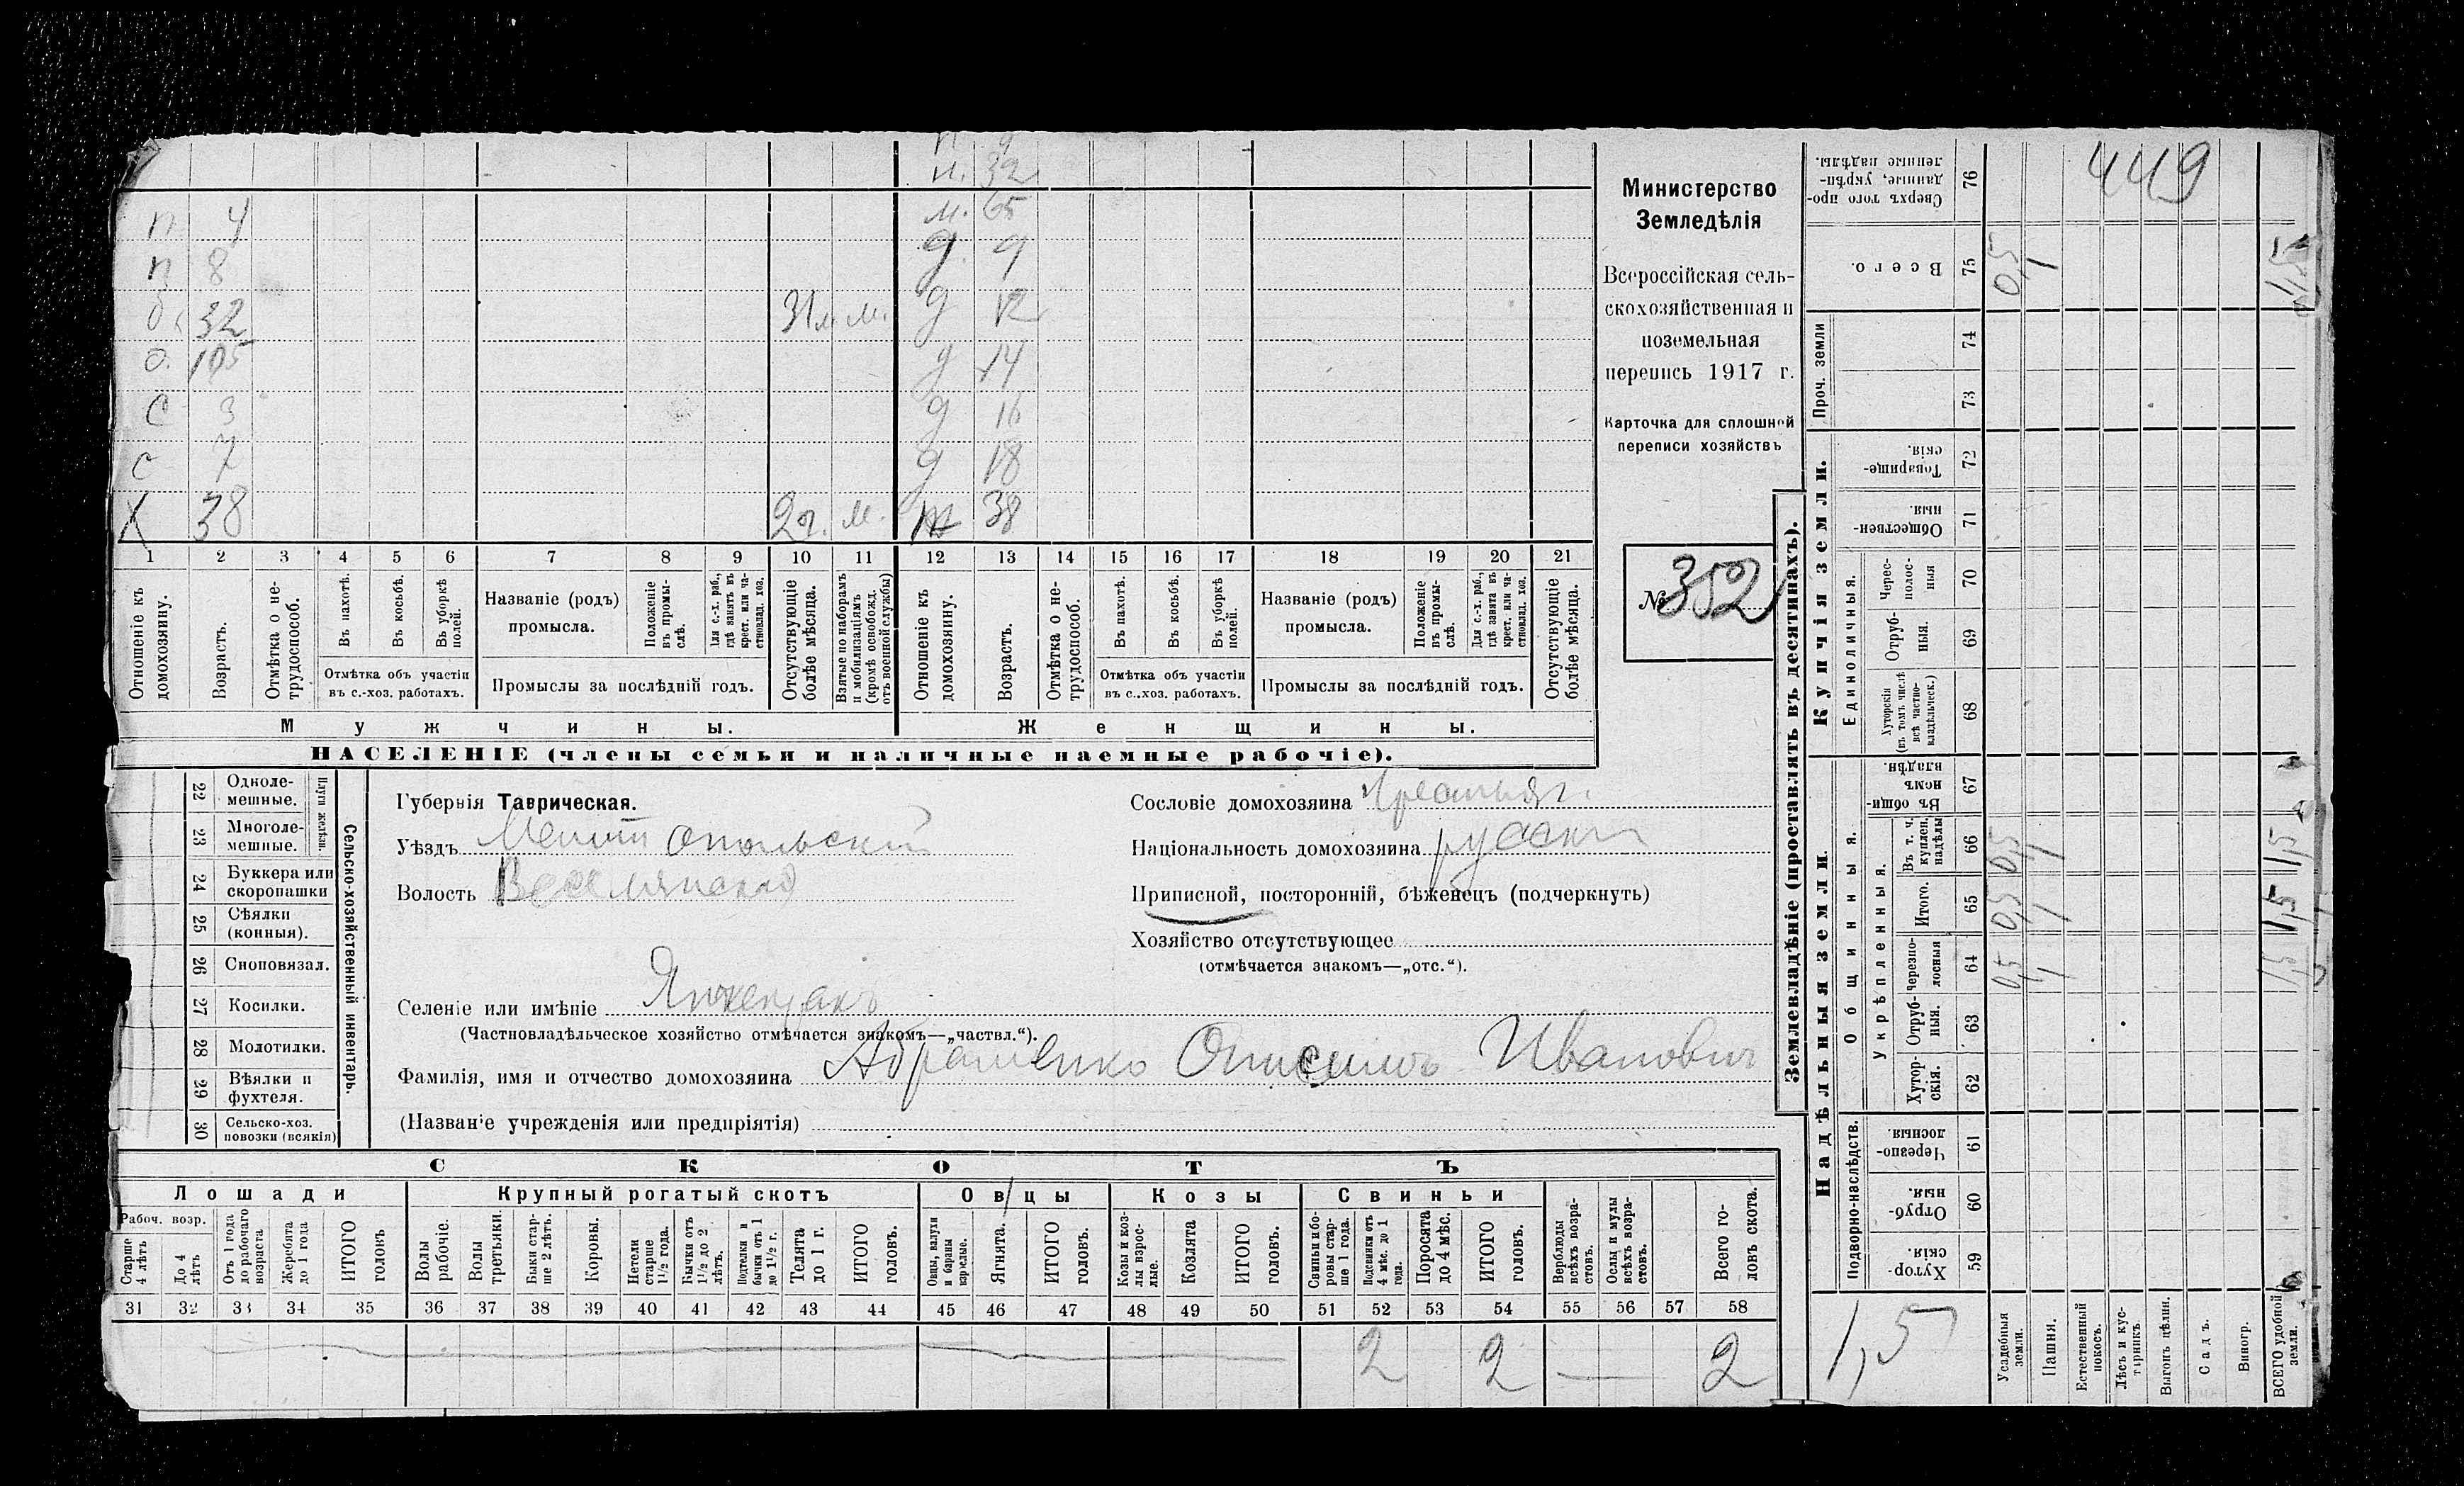 п. 9
м. 32
п 4 м. 65
п 8 д. 9
б. 32 д 12
о. 105 д 14
с 3 д 16
с 7 д 18
Х 38 2 г. м. 38
1 2 3 4 5 6 7 8 9 10 11 12 13 14 15 16 17 18 19 20 21
Отношеніе къ домохозяину.
Возрастъ.
Отмѣтка о не-трудоспособ.
Въ пахотѣ.
Въ косьбѣ.
Въ уборкѣ полей.
Отмѣтка объ участіи
въ с.-хоз. работахъ.
Названіе (родъ)
промысла.
Положеніе въ промы-слѣ.
Для с.-х. раб., гдѣ занятъ въ крест. или ча-стновлад. хоз.
Промыслы за послѣдній годъ.
Отсутствующіе болѣе мѣсяца.
Взятые по наборамъ и мобилизаціямъ (кромѣ освобожд. отъ военной службы)
Отношеніе къ домохозяину.
Возрастъ.
Отмѣтка о не-трудоспособ.
Въ пахотѣ.
Въ косьбѣ.
Въ уборкѣ полей.
Отмѣтка объ участіи
въ с.-хоз. работахъ.
Названіе (родъ)
промысла.
Положеніе въ промы-слѣ.
Для с.-х. раб., гдѣ занята въ крест. или ча-стновлад. хоз.
Промыслы за послѣдній годъ.
Отсутствующіе болѣе мѣсяца.
Мужчины. Женщины.
НАСЕЛЕНІЕ (члены семьи и наличные наемные рабочіе).
Министерство
Земледѣлія
Всероссійская сель-
скохозяйственная и
поземельная
перепись 1917 г.
Карточка для сплошной
переписи хозяйствъ
№ 352
Сельско-хозяйственный инвентарь.
Плуги желѣзн.
22 Одноле-
мешные.
23 Многоле-
мешные.
24 Буккера или
скоропашки
25 Сѣялки
(конныя).
26 Сноповязал.
27 Косилки.
28 Молотилки.
29 Вѣялки и
фухтеля.
30 Сельско-хоз.
повозки (всякія)
Губернія Таврическая.
Уѣздъ Мелитопольский
Волость Веселянская
Селеніе или имѣніе
(Частновладѣльческое хозяйство отмѣчается знакомъ—„частвл.“).
Фамилія, имя и отчество домохозяина Абраменко Онисимъ Иванович
(Названіе учрежденія или предпріятія)
Сословіе домохозяина крестьян.
Національность домохозяина русскій
Приписной, посторонній, бѣженецъ (подчеркнуть)
Хозяйство отсутствующее
(отмѣчается знакомъ—„отс.“).
СКОТЪ
Лошади Крупный рогатый скотъ Овцы Козы Свиньи
Рабоч. возр.
Старше 4 лѣтъ
До 4 лѣтъ
Отъ 1 года до рабочаго возраста
Жеребята до 1 года
ИТОГО головъ
Волы рабочіе.
Волы третьяки.
Быки стар-ше 2 лѣтъ.
Коровы.
Нетели старше 1 1/2 года.
Бычки отъ 1 1/2 до 2 лѣтъ.
Подтелки и бычки отъ 1 до 1 1/2 г.
Телята до 1 г.
ИТОГО головъ.
Овцы, валухи и бараны взрослые.
Ягнята.
ИТОГО головъ.
Козы и коз-лы взрос-лые.
Козлята
ИТОГО головъ.
Свиньи и бо-ровы стар-ше 1 года.
Подсвинки отъ 4 мѣс. до 1 года.
Поросята до 4 мѣс.
ИТОГО головъ.
Верблюды всѣхъ возра-стовъ.
Ослы и мулы всѣхъ возра-стовъ.
Всего го-ловъ скота.
31 32 33 34 35 36 37 38 39 40 41 42 43 44 45 46 47 48 49 50 51 52 53 54 55 56 57 58
2 2 — 2
Землевладѣніе (проставлять въ десятинахъ).
Купчія земли.
Надѣльныя земли.
Сверхъ того про-данные, укрѣп-ленные надѣлы. 76
449
Всего. 75 0,5 1 1,5
Проч. земли 74
73
Товарище-скія. 72
Обществен-ныя. 71
Единоличныя.
Черес-полос-ныя 70
Отруб-ныя. 69
Хуторскія (въ томъ числѣ всѣ частно-владѣльческ.) 68
Общинныя.
Въ общин-номъ владѣн. 67
Укрѣпленныя.
Въ т. ч. куплен. надѣлы 66 0,5 1 1,5
Итого. 65 0,5 1 1,5
Черезпо-лосныя 64 0,5 1 1,5
Отруб-ныя. 63
Хутор-скія. 62
Подворно-наслѣдств.
Черезпо-лосныя. 61
Отруб-ныя. 60
Хутор-скія. 59
1,5
Усадебныя земли.
Пашня.
Естественный покосъ.
Лѣсъ и кус-тарникъ.
Выгонъ цѣлин.
Садъ.
Виногр.
ВСЕГО удобной земли.